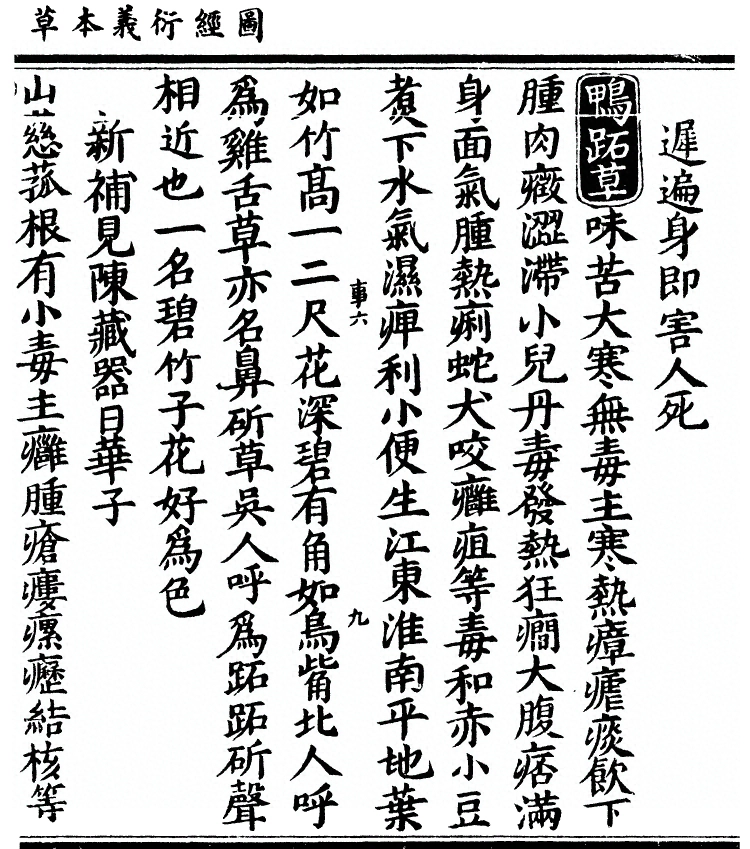 圖經衍義本草
遲遍身即害人死
鴨跖草味苦大寒無毒主寒熱瘴瘧痰飲下
腫肉癥澀滯小兒丹毒發熱狂癇大腹痞滿
身面氣腫熱痢蛇犬咬癰疽等毒和赤小豆
煑下水氣濕痺利小便生江東淮南平地葉
事六
九
如竹髙一二尺花深碧有角如鳥觜北人呼
爲雞舌草亦名鼻斫草吳人呼爲跖跖斫聲
相近也一名碧竹子花好爲色
新補見陳藏器日華子
山慈菰根有小毒主癰腫瘡瘻瘰癧結核等